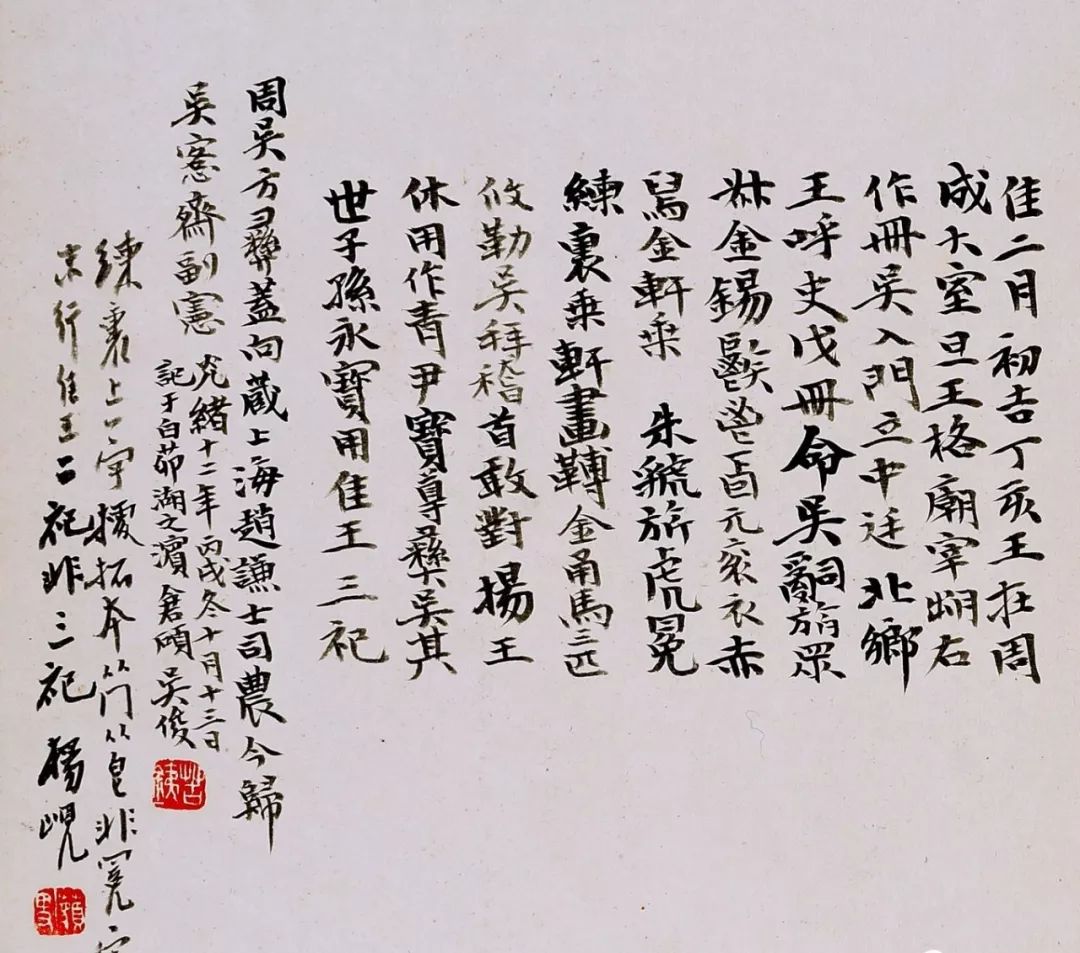 隹二月初吉丁亥王在周
成大室旦王格廟宰朏右
作冊吳入門立中廷北鄉
王呼史戊冊命吳嗣旃眾
叔金錫鬯卣元袞衣赤
舃金軒乘 朱虢旂虎冟
練裏乘軒畫轉金甬馬三匹
攸勒吳拜稽首敢對揚王
休用作青尹寶尊彝吳其
世子孫永寶用隹王三祀
周吳方彝蓋向蔵上海趙謙士司農今歸
吳愙齋副憲
光緒十二年丙戌冬十月十三日
記于白茆湖之濱 倉碩 吳俊
苦鐵
練裏上一字據拓本从冂从皂非冕字
末行隹王二祀非三祀 楊峴